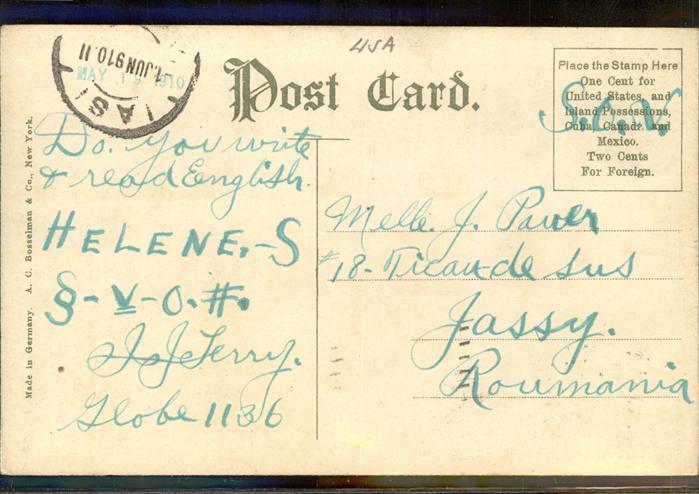 USA
Post Card.
MAY 19 1910
1.JUN910.11
IASI
Place the Stamp Here
One Cent for
United States, and
Island Possessions,
Cuba, Canada and
Mexico.
Two Cents
For Foreign.
S.C.V.
Made in Germany. A. C. Bosselman & Co., New York.
Do. You write
& read English.
HELENE.-S
§-V-O.#.
J. Terry.
Globe 1136
Melle. J. Paver
#18-Ticau de sus
Jassy.
Roumania